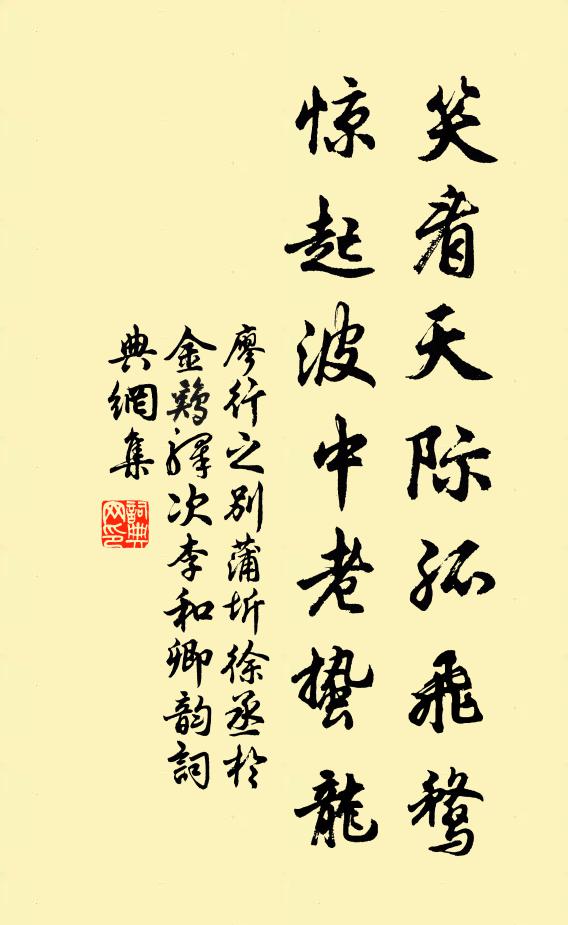 笑看天际孤飛鶩
惊起波中老蛰龍
廖行之别蒲圻徐丞於
金鷄驛次李和卿韵詞
典網集
詞典
网印